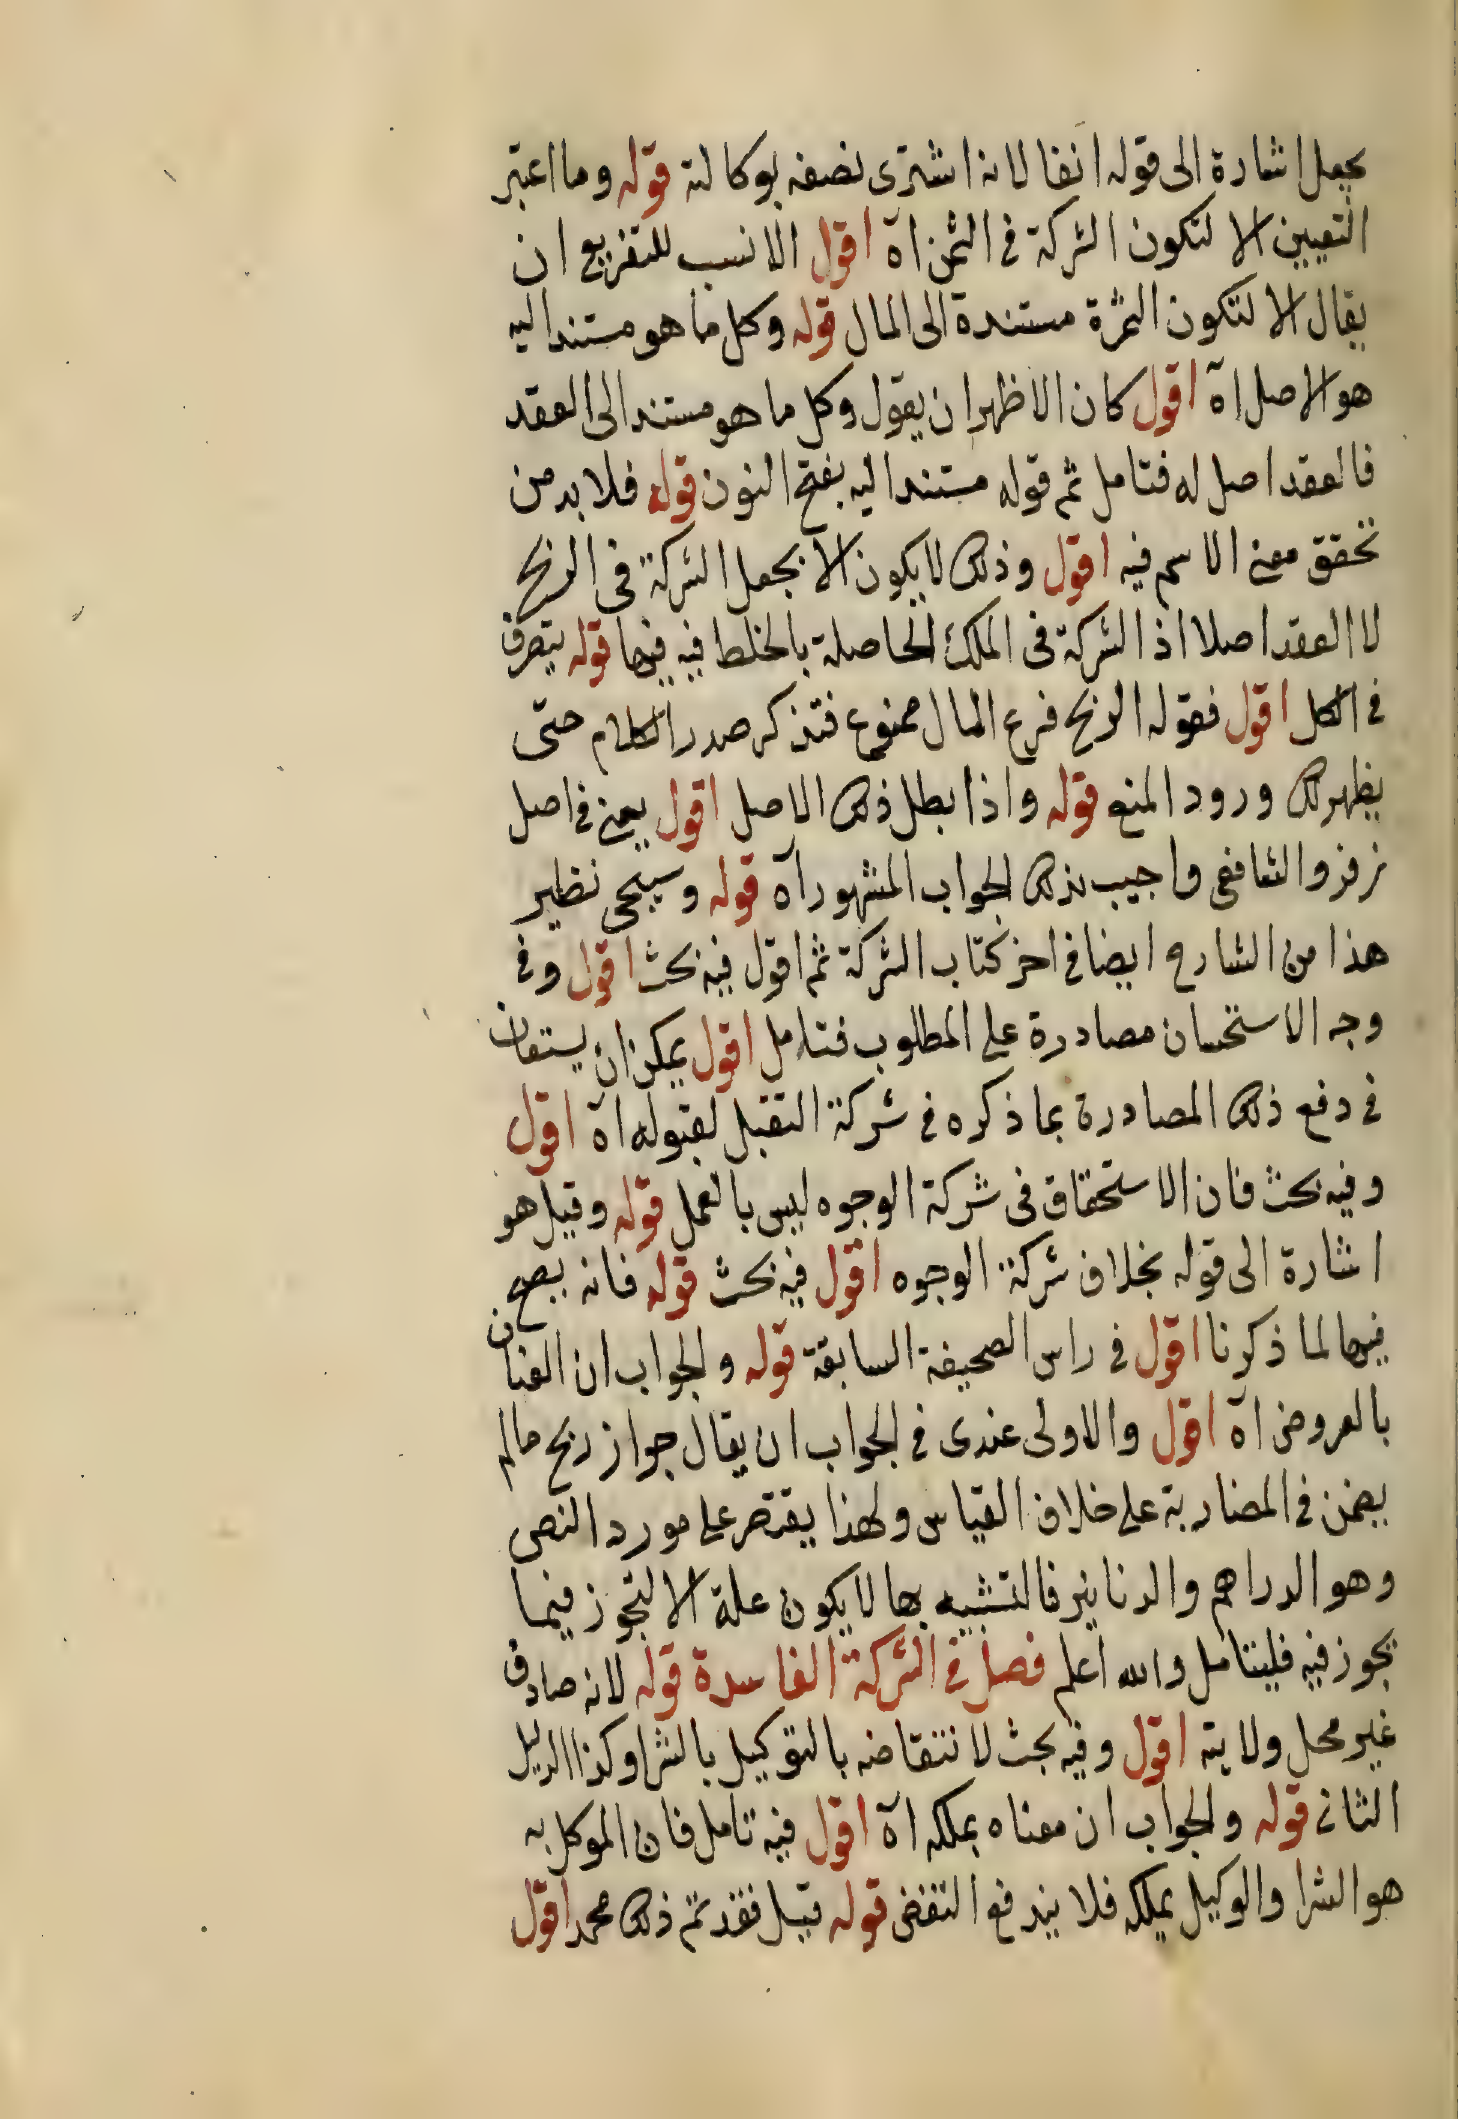 يجعل اشارة الى قوله انفا لانه اشترى نصفه بوكالته قوله وما اعتبر
التعيين الا لتكون الشركة في الثمن اه اقول الانسب للتفريع ان
يقال الا لتكون الثمرة مستندة الى المال قوله وكل ما هو مستند اليه
هو الاصل اه اقول كان الاظهر ان يقول وكل ما هو مستند الى العقد
فالعقد اصل له فتامل ثم قوله مستند اليه بفتح النون قوله فلا بد من
تحقق معنى الاسم فيه اقول وذلك لا يكون الا بجعل الشركة في الربح
لا العقد اصلا اذ الشركة في الملك الحاصلة بالخلط فيه فيهما قوله يتصرف
في الكل اقول فقوله الربح فرع المال ممنوع فتذكر صدر الكلام حتى
يظهر لك ورود المنع قوله واذا بطل ذلك الاصل اقول يعنى في اصل
زفر والشافعى واجيب بذلك الجواب المشهور اه قوله وسيجى نظير
هذا من الشارح ايضا في اخر كتاب الشركة ثم اقول فيه بحث اقول وفي
وجه الاستحسان مصادرة على المطلوب فتامل اقول يمكن ان يستعان
في دفع ذلك المصادرة بما ذكره في شركة التقبل لقبوله اه اقول
وفيه بحث فان الاستحقاق في شركة الوجوه ليس بالعمل قوله وقيل هو
اشارة الى قوله بخلاف شركة الوجوه اقول فيه بحث قوله فانه يصح
فيهما لما ذكرنا اقول في راس الصحيفة السابقة قوله والجواب ان العنان
بالعروض اه اقول والاولى عندى في الجواب ان يقال جواز ربح مالم
يضمن في المضاربة على خلاف القياس ولهذا يقتصر على مورد النص
وهو الدراهم والدنانير فالتشبيه بها لا يكون علة الا لتجوز فيما
تجوز فيه فليتامل والله اعلم فصل في الشركة الفاسدة قوله لانه صادف
غير محل ولايته اقول وفيه بحث لانتقاضه بالتوكيل بالشرا وكذا الدليل
الثانى قوله والجواب ان معناه يملكه اه اقول فيه تامل فان الموكل به
هو الشرا والوكيل يملكه فلا يندفع النقض قوله قبل فقد تم ذلك محمد اقول